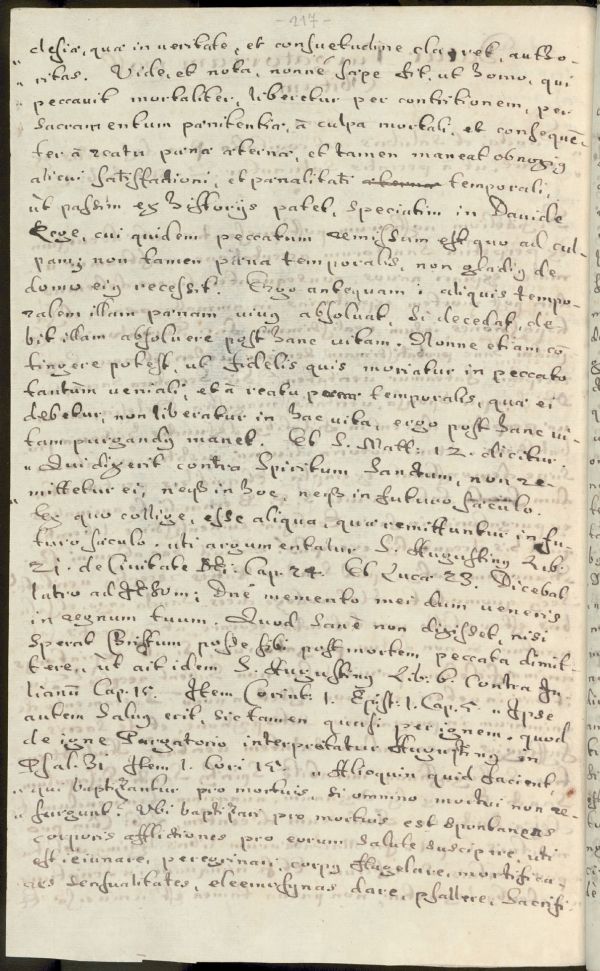 - 217 -
clesiæ, quæ in veritate, et consuetudine claret, autho-
ritas. Vide, et nota, nonne sæpe fit, ut homo, qui
peccavit mortaliter, liberetur per contritionem, per
Sacramentum pænitentiæ, à culpa mortali, et consequē-
ter à reatu pænæ æternæ, et tamen maneat obnoxiꝰ
alicui satisfactioni, et pænalitati temporali,
ùt passim ex historijs patet, speciatim in Davide
Rege, cui quidem peccatum remissum est quo ad cul-
pam; non tamen pæna temporalis, non gladiꝰ de
domo eiꝰ recessit. Ergo antequam aliquis tempo-
ralem illam pænam vivꝰ absolvat, si decedat, de-
bit illam absolvere post hanc vitam. Nonne etiam cō-
tingere potest, ut fidelis quis moriatur in peccato
tantùm veniali, et à reatu temporalis, quæ ei
debetur, non liberatur in hac vita, ergo post hanc vi-
tam purgandꝰ manet. Et S. Matt: 12. dicitur.
" Qui dixerit contra Spiritum Sanctum, non re-
mittetur ei, neqꝫ in hoc, neqꝫ in futuro sæculo.
Ex quo collige, esse aliqua, quæ remittuntur in fu-
turo sæculo. uti argumentatur S. Augustinꝰ Lib:
21. de Civitate Dei Cap. 24. Et Lucæ 23. Dicebat
latro ad IEsum; Dnē memento mei dum veneris
in regnum tuum. Quod sanè non dixisset, nisi
sperat Christum posse sibi post mortem peccata dimit-
tere, ùt ait idem S. Augustinꝰ Lib: 6. Contra Ju-
lianū Cap. 15. Item Corint: 1. Epist: 1. Cap. " Ipse
autem salvꝰ erit, sic tamen quasi per ignem. quod
de igne Purgatorio interpretatur Augustinꝰ in
Psal. 31. Item 1. Cori 15. " Alioquin quid facient,
" qui baptizantur pro mortuis, si omnino mortui non re-
" surgunt? Ubi baptizari pro mortuis est spontaneas
corporis afflictiones pro eorum salute suscipere, uti
est ieiunare, peregrinari, corpꝰ flagelare, mortifica-
sensualitates, eleemosynas dare, psallere, Sacrifi-